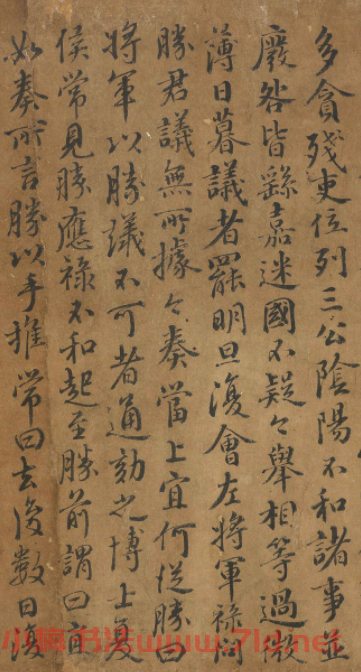 多貪殘吏位列三公陰陽不和諸事並
廢咎皆繇嘉迷國不疑今舉相等過微
薄日暮議者罷明旦復會左將軍祿問
勝君議無所據今奏當上宜何從勝曰
將軍以勝議不可者通劾之博士夏
侯常見勝應祿不和起至勝前謂曰宜
如奏所言勝以手推常曰去後數日復